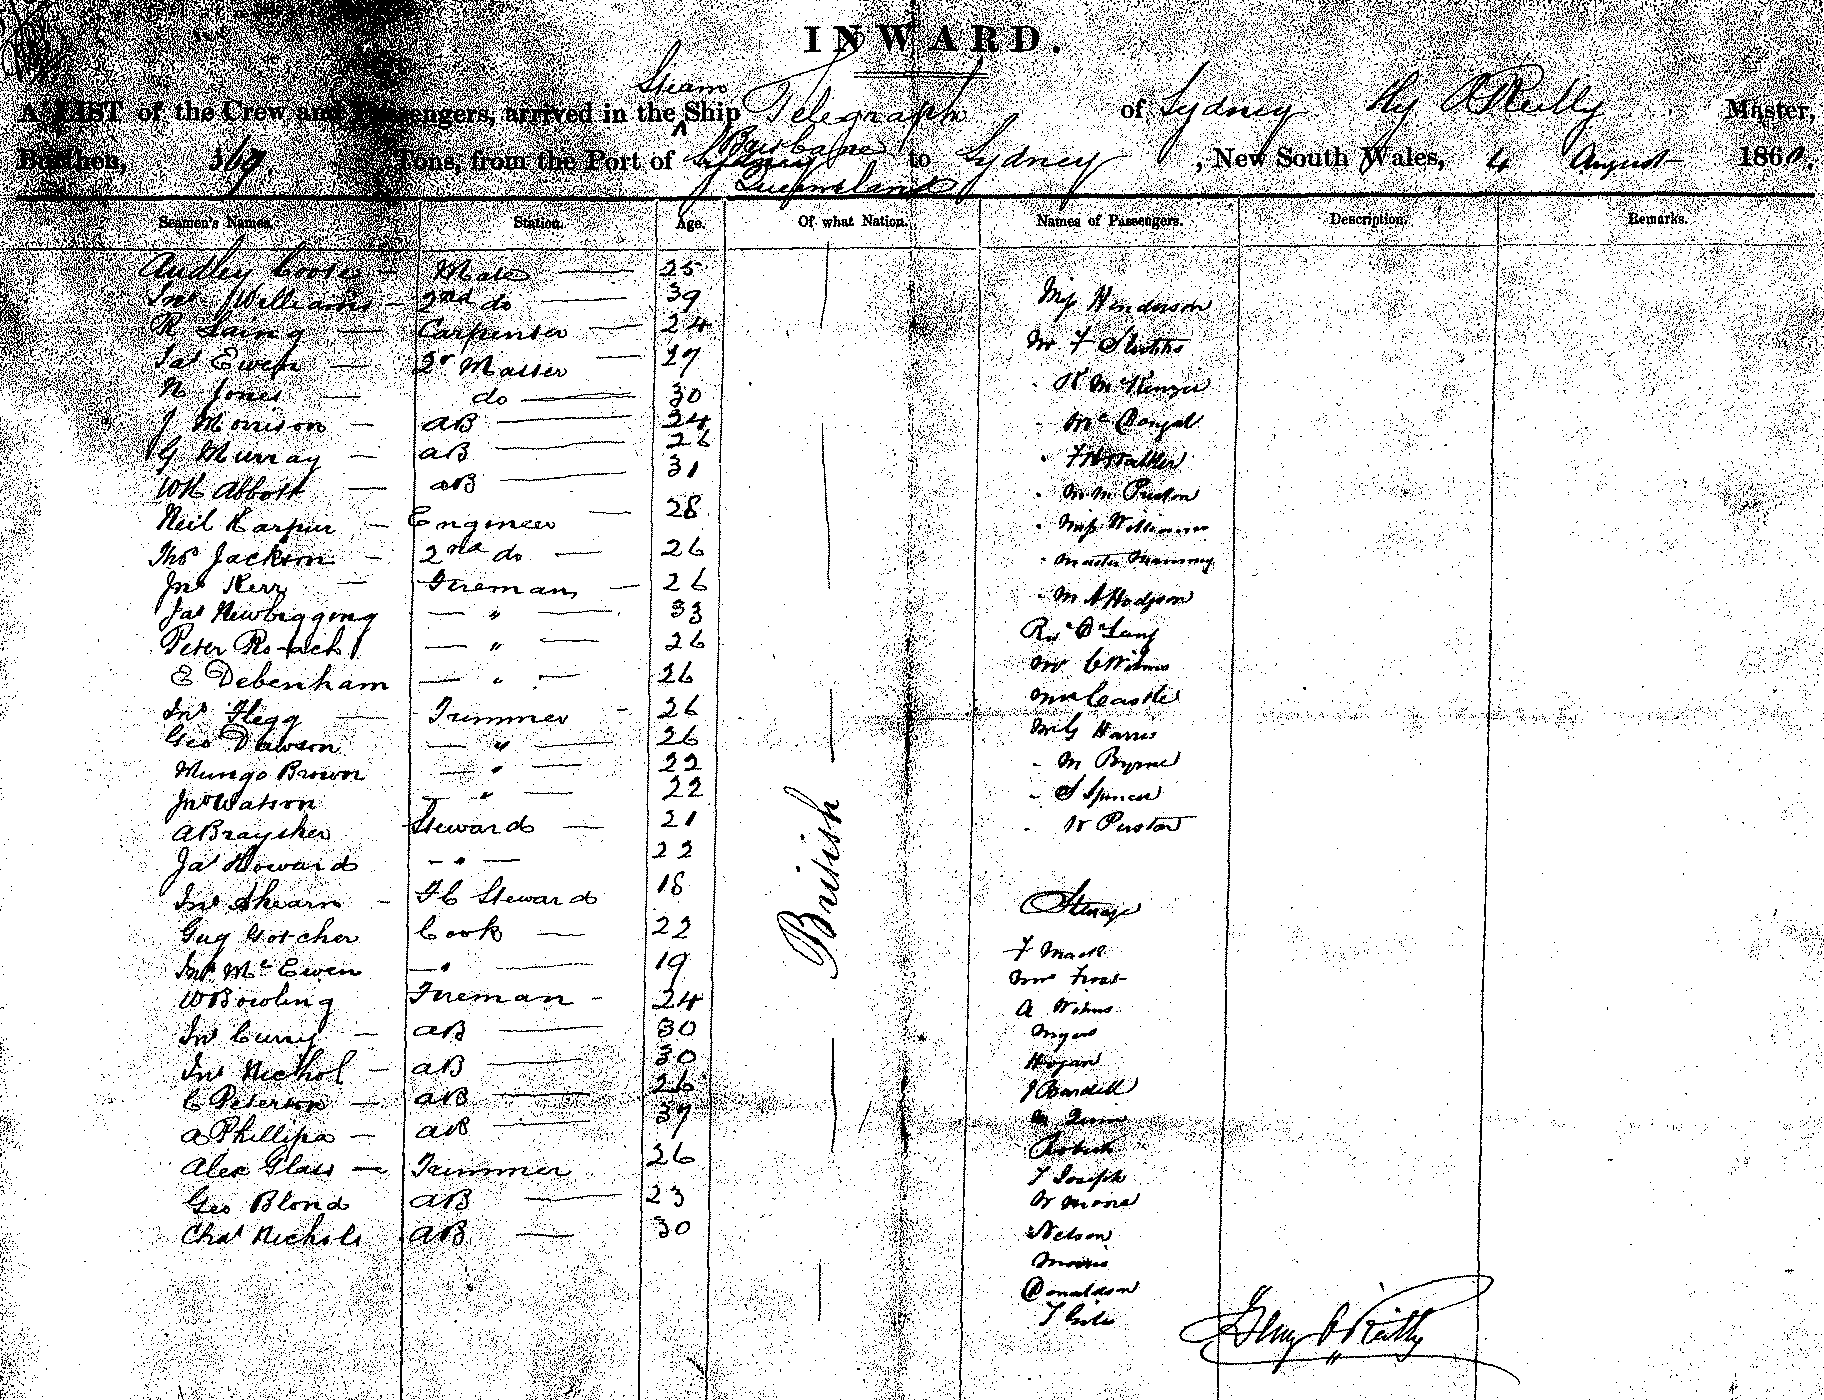 INWARD.
Steam
A LIST of the Crew and Passengers, arrived in the Ship Telegraph of Sydney Hy O'Reilly Master,
Brisbane
Burthen, 369. Tons, from the Port of Sydney to Sydney, New South Wales, 4 August 1860.
Queensland
Seamen's Names. Station. Age. Of what Nation. Names of Passengers. Description. Remarks.
Audley Coote Mate 25
Jno Williams 2nd do 39 Miss Henderson
R Laing Carpenter 24 Mr F Stubbs
Jas Ewen Qr Master 27
N Jones do 30 R McKenzie
J Morrison AB 24
G Murray AB 26 Walker
Wm Abbott AB 31
Neil Harper Engineer 28 Miss Williams
Thos Jackson 2nd do 26 Master
Jno Kerr Fireman 26 Mr A Hodgson
Jas Newbigging " 33 Revd Dr Lang
Peter Roach " 26 Mr
E Debenham " 26 Mrs Castle
Jno Flegg Trimmer 26 Mr G Harris
Geo Dawson " 26 M Byrne
Mungo Brown " 22 S Spencer
Jno Watson " 22
A Braysher Steward 21
Jas Howard " 22
Jno Shearn FC Steward 18 Steerage
Guy Gotcher Cook 22 F Mack
Jno McEwen " 19 Mrs Frost
W Bowling Fireman 24 A
Jno Curry AB 30 Myers
Jno Nichol AB 30 Hogan
C Peterson AB 26 J Bardell
A Phillips AB 39 Quin
Alex Glass Trimmer 26 Roberts
Geo Blond AB 23 T Joseph
Chas Nichols AB 30 W Moore
Nelson
Morris
Donaldson
British
Henry O'Reilly